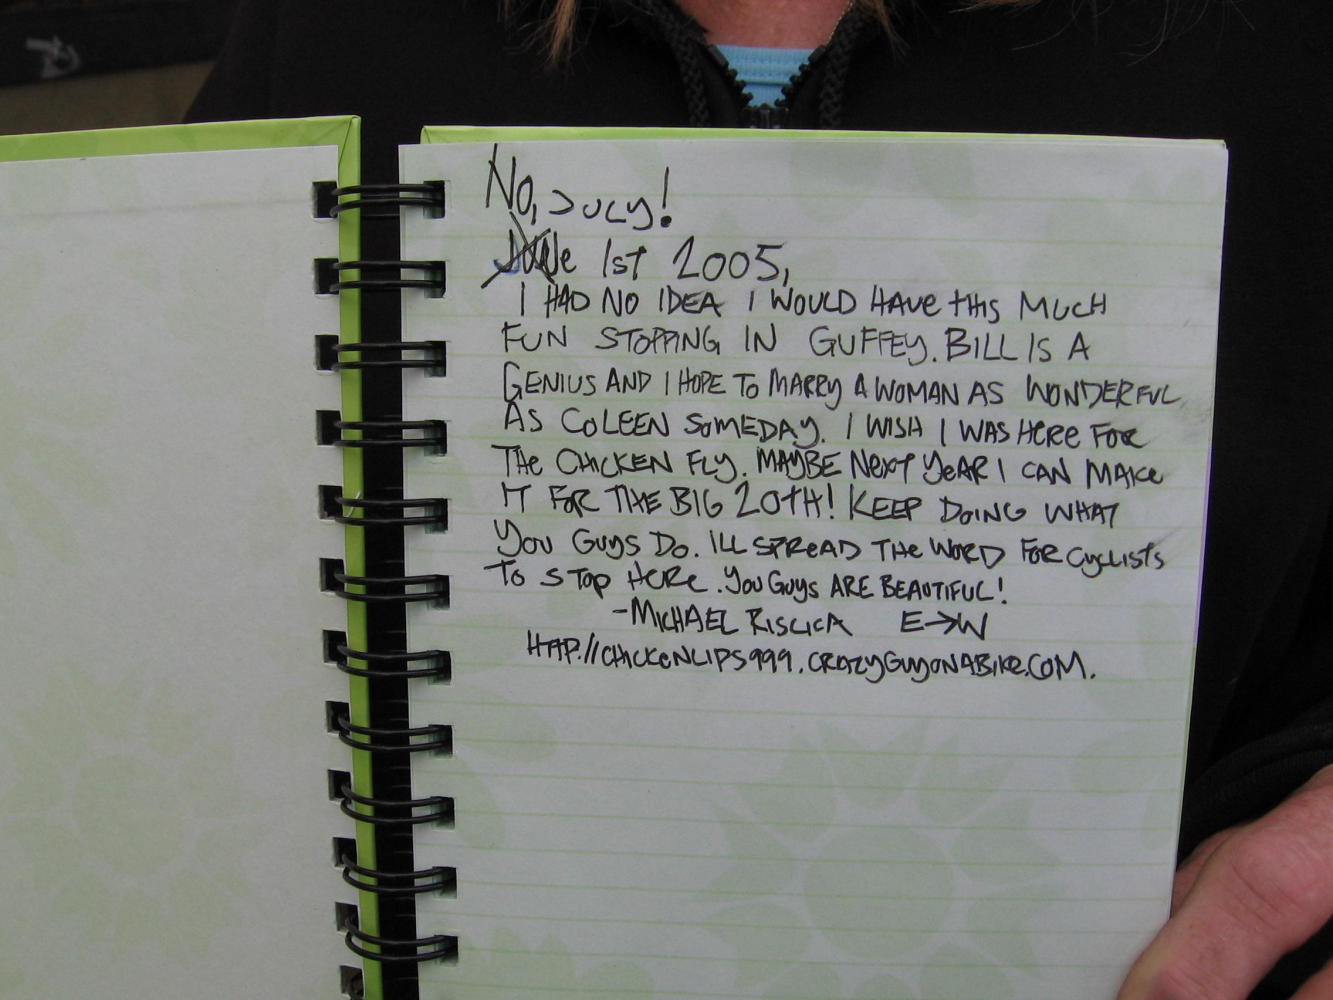 No, JULY!
JUNe 1st 2005,
I HAD NO IDEA I WOULD HAVe tHis MUCH
FUN STOPPING IN GUFFEY. BILL IS A
GENIUS AND I HOPE TO MARRY A WOMAN AS WONDERFUL
AS COLEEN SOMEDAY. I WISH I WAS HeRe FOR
THe CHICKEN FLY. MAYBE NeXT YeAR I CAN MAKe
IT FOR THE BIG 20TH! KEEP DOING WHAT
YOU GUYS DO. ILL SPReAD THe WORD FOR CYCLISTS
TO STOP HeRe. YOU GUYS ARE BEAUTIFUL!
-MICHAEL RISLICA E→W
HTTP://CHICKeNLIPS999.CRAZYGUYONABIKe.COM.